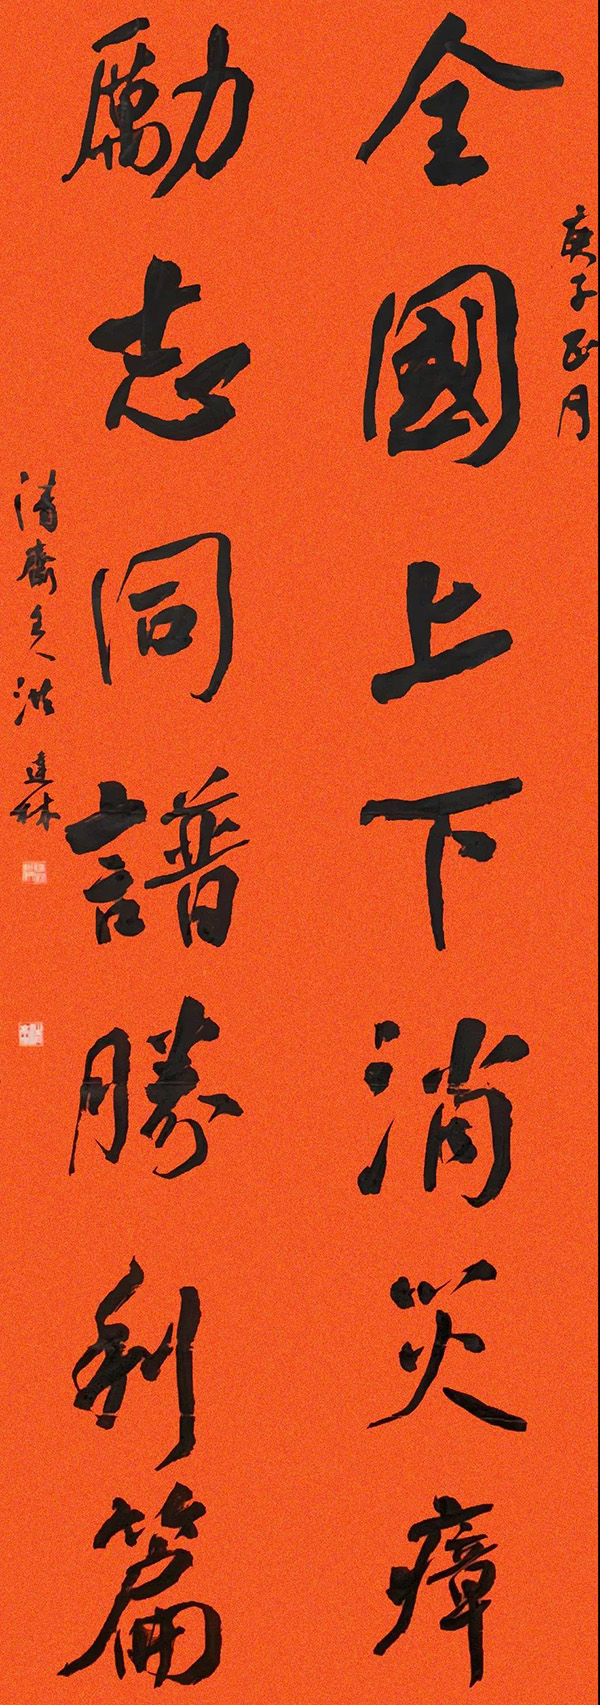 庚子正月
全國上下消災瘴
勵志同譜勝利篇
清齋主人洪建林